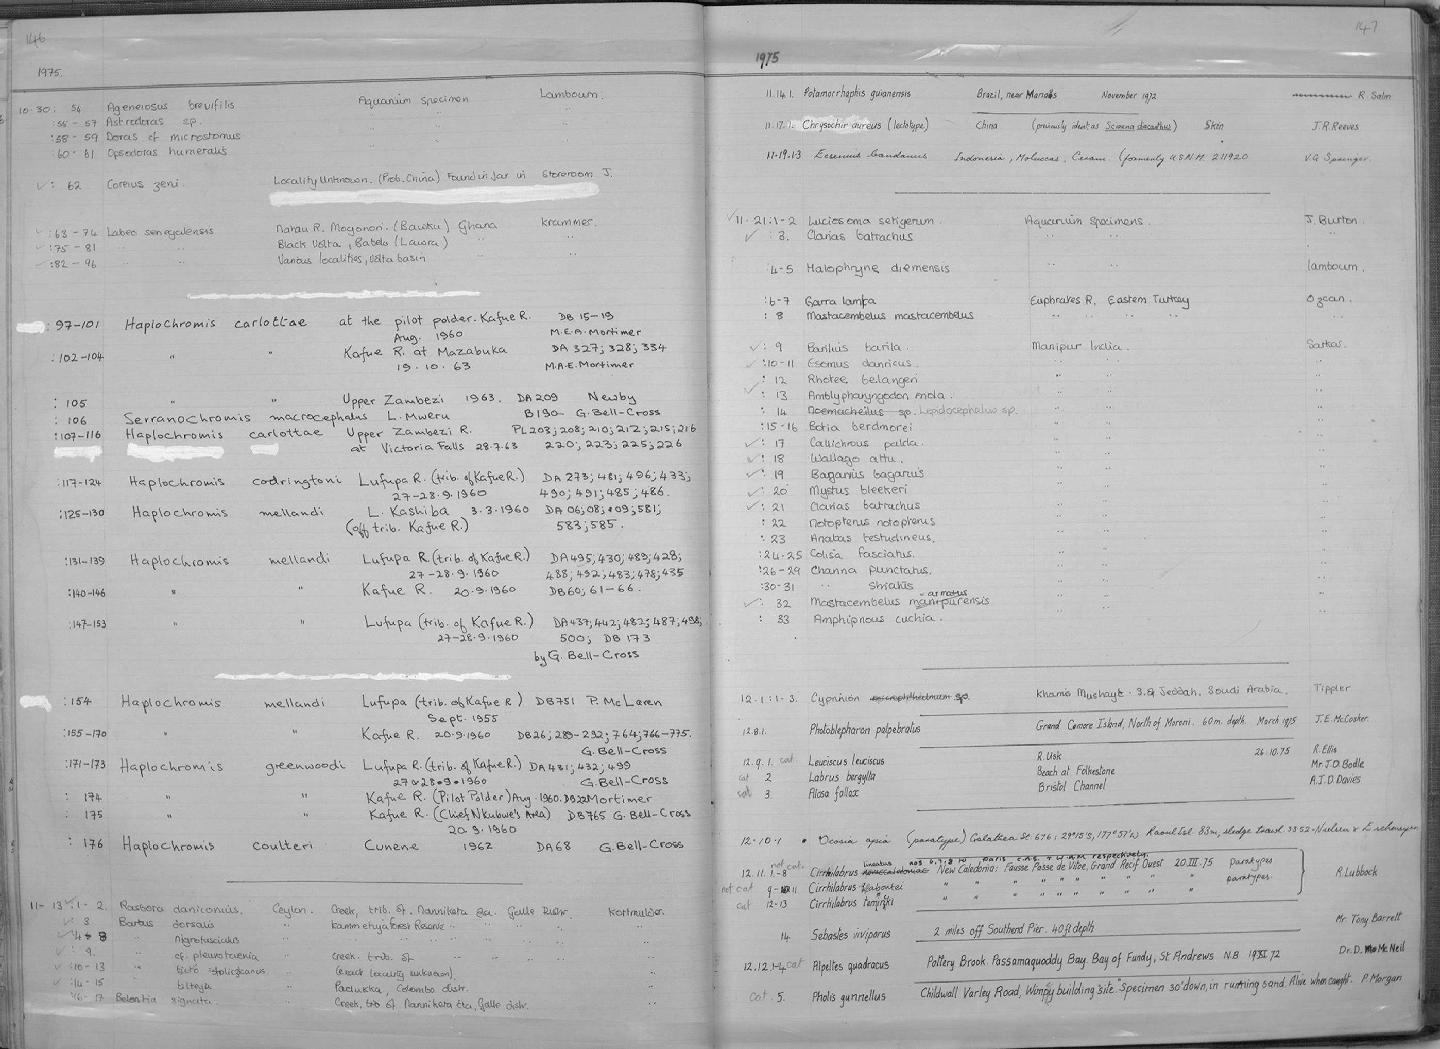 146
1975.
10.30: 54 Ageneiosus brevifilis Aquarium Specimen Lambourn.
:55-57 Astrodoras sp. " "
:58-59 Doras cf microstomus
:60-61 Opsodoras humeralis
✓: 62 Coreius zeni. Locality Unknown. (Prob. China) Found in Jar in Storeroom J.
✓:63-74 Labeo senegalensis Nahau R. Mogonori. (Bawku) Ghana Krammer.
✓:75-81 " " Black Volta, Babile (Lawra) "
✓:82-96 " " Various localities, Volta basin "
:97-101 Haplochromis carlottae at the pilot polder. Kafue R. DB 15-19
Aug. 1960 M.E.A. Mortimer
:102-104 " " Kafue R. at Mazabuka DA 327; 328; 334
19.10.63 M.A.E. Mortimer
: 105 " " Upper Zambezi 1963. DA 209 Newby
: 106 Serranochromis macrocephalus L. Mweru B190- G. Bell-Cross
:107-116 Haplochromis carlottae Upper Zambezi R. PL203; 208; 210; 212; 215; 216
at Victoria Falls 28.7.63 220; 223; 225; 226
:117-124 Haplochromis codringtoni Lufupa R. (trib. of Kafue R.) DA 273; 481; 496; 433;
27-28.9.1960 490; 491; 485; 486.
:125-130 Haplochromis mellandi L. Kashiba 3.3.1960 DA 06; 08; 09; 581;
(off trib. Kafue R.) 583; 585.
:131-139 Haplochromis mellandi Lufupa R. (trib. of Kafue R.) DA495; 430; 489; 428;
27-28.9.1960 488; 492; 483; 478; 435
:140-146 " " Kafue R. 20.9.1960 DB60; 61-66.
:147-153 " " Lufupa (trib. of Kafue R.) DA437; 442; 482; 487; 498;
27-28.9.1960 500; DB 173
by G. Bell-Cross
:154 Haplochromis mellandi Lufupa (trib. of Kafue R) DB751 P. McLaren
Sept. 1955
:155-170 " " Kafue R. 20.9.1960 DB26; 289-292; 764; 766-775.
G. Bell-Cross
:171-173 Haplochromis greenwoodi Lufupa R. (trib. of Kafue R.) DA431; 432; 499
27&28.9.1960 G. Bell-Cross
: 174 " " Kafue R. (Pilot Polder) Aug. 1960. DB22 Mortimer
: 175 " " Kafue R. (Chief Nkubwe's Area) DB765 G. Bell-Cross
20.9.1960
: 176 Haplochromis coulteri Cunene 1962 DA68 G. Bell-Cross
11-13:1-2. Rasbora daniconius. Ceylon. Creek, trib. of. Nanniketa Ga. Galle Distr. Kortmulder.
✓: 3. Barbus dorsalis " Kammetiyaforest Reserve "
✓:4-8 " nigrofasciatus " " " "
✓: 9. " cf. pleurotaenia " Creek. trib. of " "
✓:10-13 " bict. stoliczkanus " (exact locality unknown). "
✓:14-15 " titteya " Padukka, Colombo distr. "
:16-17 Belontia signata. " Creek, trib of. Nanniketa Ela, Galle distr. "
147
1975
11.14.1. Potamorrhaphis guianensis Brazil, near Manaus November 1972 R. Salm
11.17.1. Chrysochir aureus (lectotype) China (previously ident as Sciaena dacanthus) Skin J.R. Reeves
11.19.1-3 Ecsenius bandanus Indonesia, Moluccas, Ceram. (formerly USNM. 211920 V.G. Springer.
✓11.21:1-2 Luciosoma setigerum. Aquarium Specimens. J. Burton.
✓ : 3. Clarias batrachus " " "
:4-5 Halophryne diemensis " " Lambourn.
:6-7 Garra lamta Euphrates R. Eastern Turkey Ozcan.
: 8 Mastacembelus mastacembelus " " " "
✓: 9 Barilius barila. Manipur India. Sarkar.
✓:10-11 Esomus danricus. " " "
: 12 Rhotee belangeri " " "
✓: 13 Amblypharyngodon mola. " " "
: 14 Noemacheilus sp. Lepidocephalus sp. " " "
:15-16 Botia berdmorei " " "
✓: 17 Callichrous pabda. " " "
✓: 18 Wallago attu. " " "
✓: 19 Bagarius bagarius " " "
✓: 20 Mystus bleekeri " " "
✓: 21 Clarias batrachus " " "
: 22 Notopterus notopterus " " "
: 23 Anabas testudineus. " " "
:24-25 Colisa fasciatus. " " "
:26-29 Channa punctatus. " " "
:30-31 " striatus " " "
armatus
✓: 32 Mastacembelus manipurensis " " "
: 33 Amphipnous cuchia. " " "
12.1:1-3. Cyprinion microphthalmum sp. Khamis Mushayt. S. of Jeddah, Saudi Arabia. Tippler
12.8.1. Photoblepharon palpebratus Grand Comore Island, North of Moroni. 60m. depth. March 1975 J.E. McCosker.
12.9.1. cat Leuciscus leuciscus R. Usk 26.10.75 R. Ellis
cat 2 Labrus bergylta Beach at Folkestone Mr. J.D. Bodle
cat 3. Alosa fallax Bristol Channel A.I.D. Davies
12.10.1 • Ocosia apia (paratype) Galathea St. 676: 29°15'S, 177°57'W Raoul Isl. 83m, sledge trawl
lineatus nos 6,7,8 to Paris respectively.
12.11.1-8 not cat. Cirrhilabrus New Caledonia: Fausse Passe de Uitoe, Grand Récif Ouest 20.III.75 paratypes
not cat 9-11 Cirrhilabrus " " " " " " " " paratypes. R. Lubbock
cat 12-13 Cirrhilabrus temminckii " " " " " " "
14 Sebastes viviparus 2 miles off Southend Pier. 40ft depth Mr. Tony Barrett
12.12.1-4 cat Alpeltes quadracus Pottery Brook. Passamaquoddy Bay. Bay of Fundy, St Andrews N.B 1972 Dr. D. McNeil
cat. 5. Pholis gunnellus Childwall Varley Road, Wimpy building "site". Specimen 30' down, in running sand. Alive when caught. P. Morgan